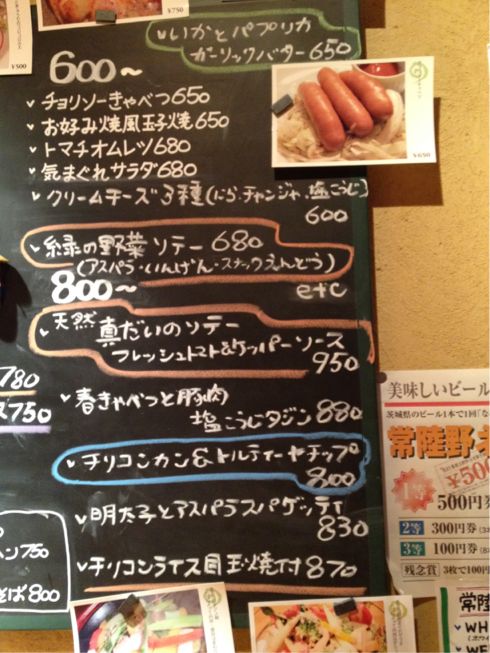 ¥500
¥750
いかとパプリカ
ガーリックバター 650
600～
チョリソーきゃべつ 650
お好み焼風玉子焼 650
トマチオムレツ 680
気まぐれサラダ 680
クリームチーズ3種(にら、チャンジャ、塩こうじ)
600
¥650
緑の野菜ソテー 680
(アスパラ・いんげん・スナックえんどう)
800～
etc
天然真だいのソテー
フレッシュトマト&ケッパーソース
950
780
750
春きゃべつと豚肉
塩こうじタジン 880
チリコンカン&トルティーヤチップ
800
明太子とアスパラスパゲッティ
830
チリコンライス目玉焼付 870
750
そば 800
美味しいビール
茨城県のビール1本で1回「な
常陸野ネ
¥500
1等
500円券
2等
300円券
3等
100円券
残念賞
3枚で100円
常陸
WH
WE